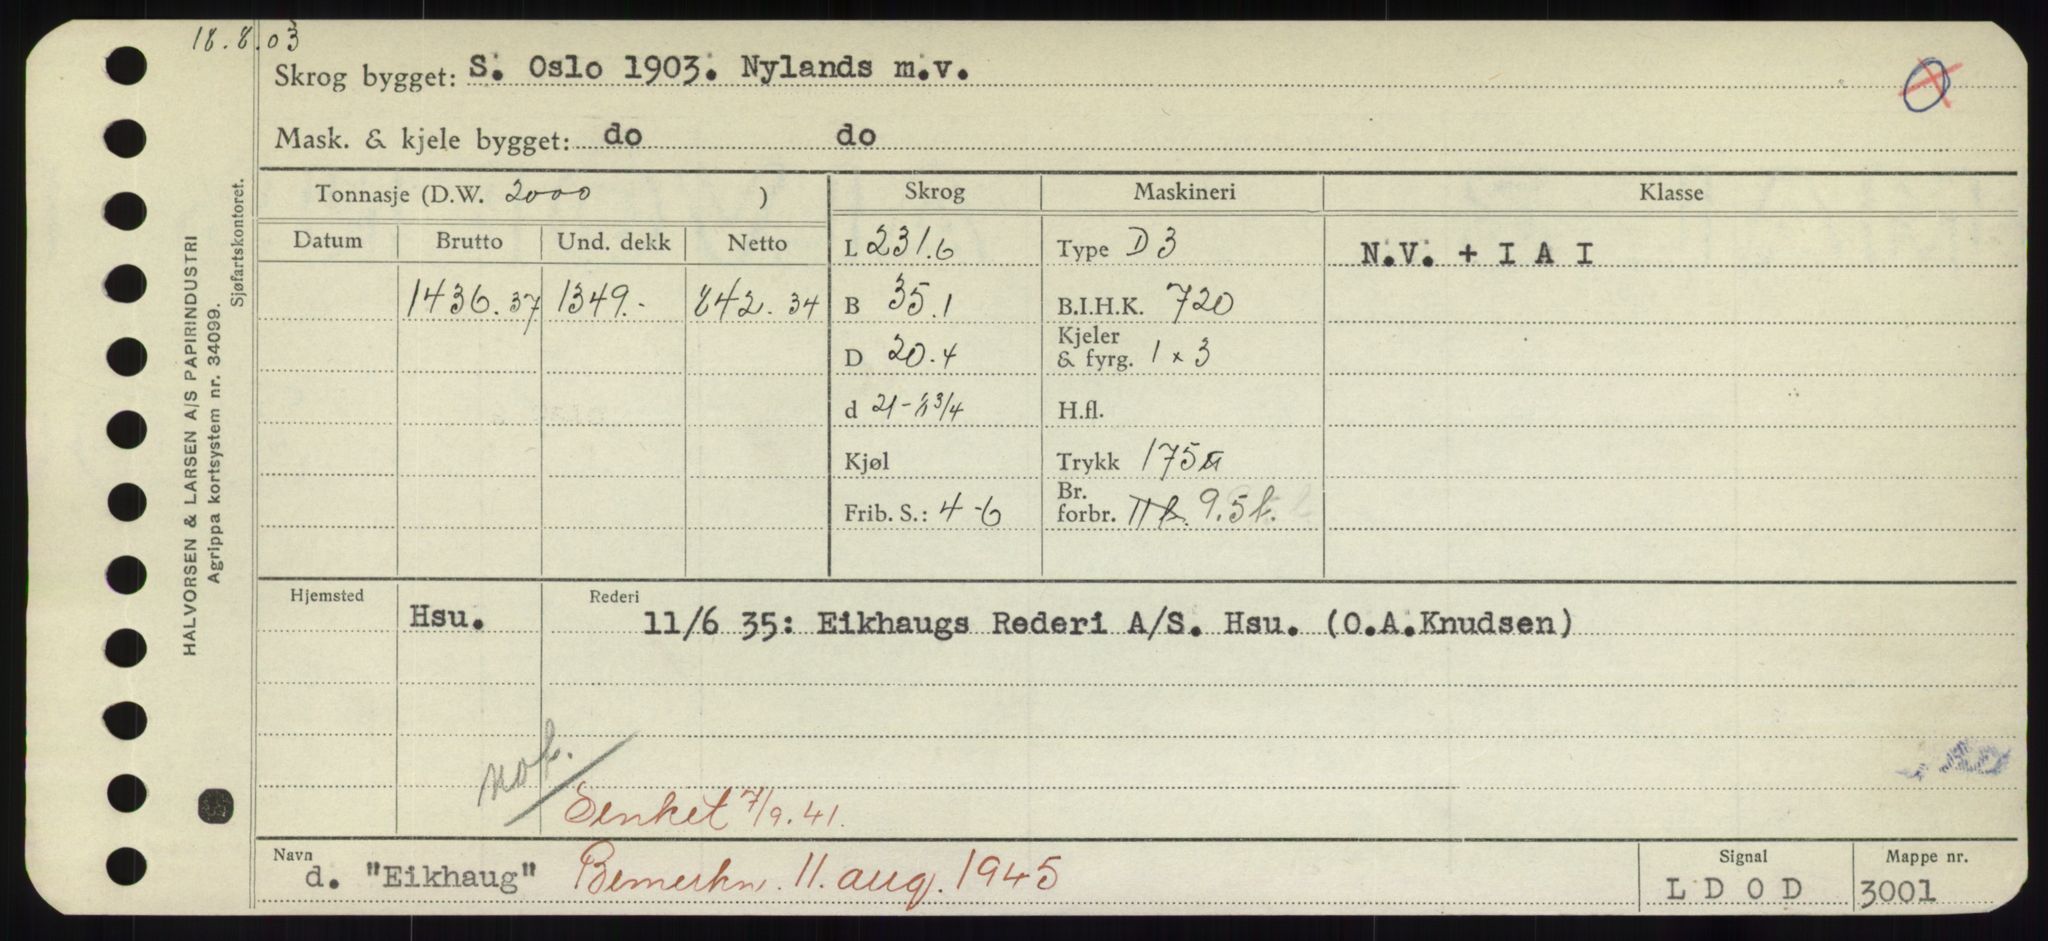 18.8.03
Skrog bygget: S. Oslo 1903. Nylands m.v.
Mask. & kjele bygget: do do
HALVORSEN & LARSEN A/S PAPIRINDUSTRI
Agrippa kortsystem nr. 34099.
Sjøfartskontoret.
Tonnasje (D.W. 2000 ) Skrog Maskineri Klasse
Datum Brutto Und. dekk Netto L 231.6 Type D3 N.V. + I A I
1436.37 1349.- 842.34 B 35.1 B.I.H.K. 720
D 20.4 Kjeler & fyrg. 1 x 3
d 21-8 3/4 H.fl.
Kjøl Trykk 175
Frib. S.: 4-6 Br. forbr. 11 t. 9.5 t.
Hjemsted Hsu. Rederi 11/6 35: Eikhaugs Rederi A/S. Hsu. (O.A.Knudsen)
not.
Senket 7/9.41.
Navn d. "Eikhaug" Bemerkn. 11. aug. 1945 Signal L D O D Mappe nr. 3001